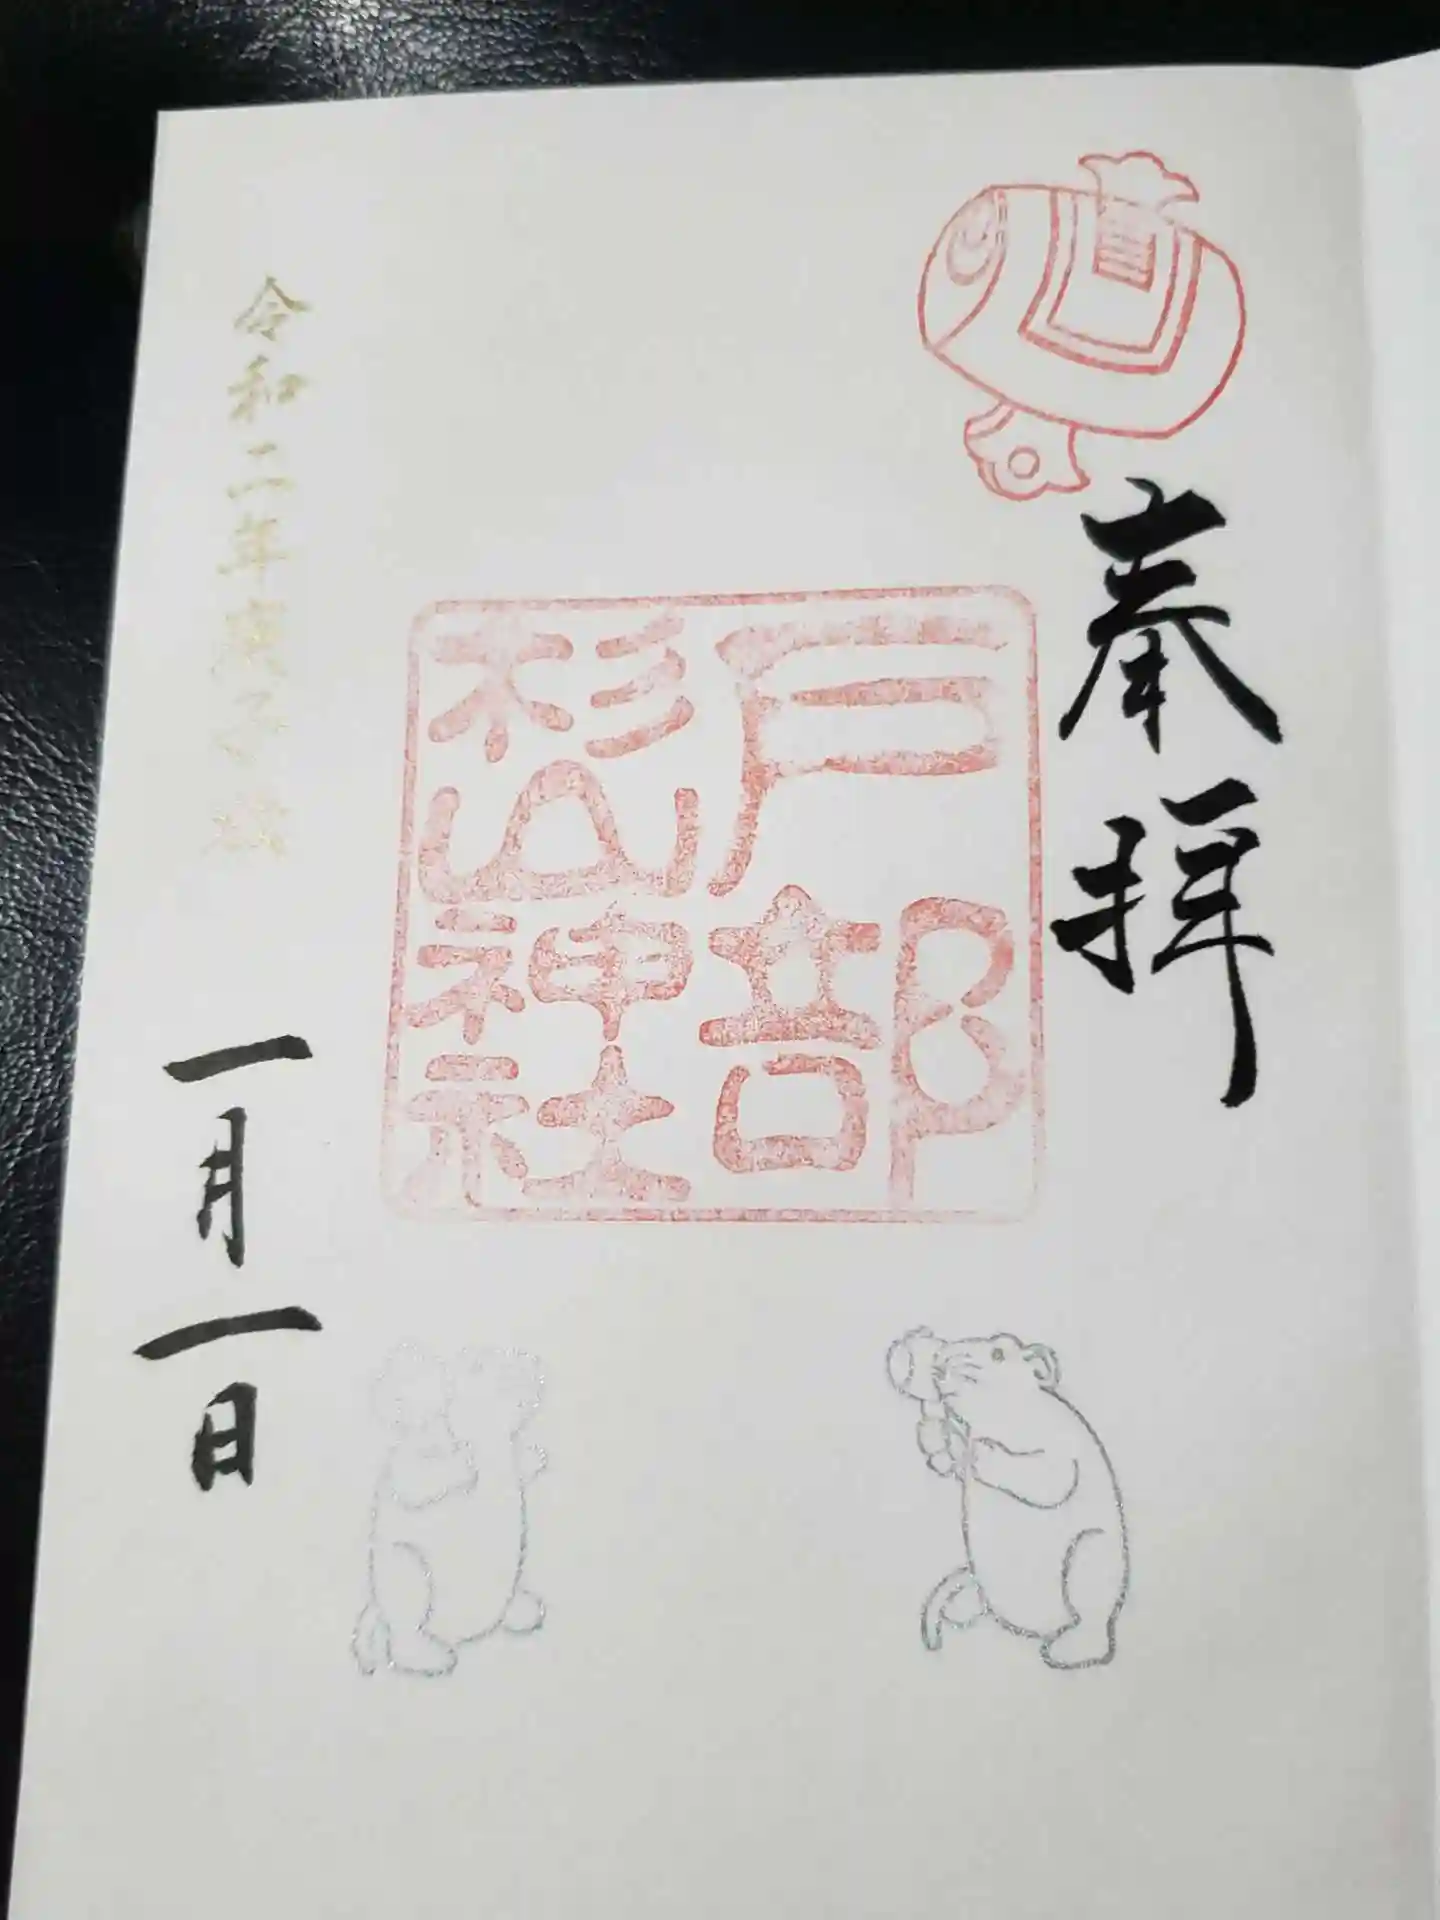 奉拝
戸部
杉山
神社
令和二年庚子歳
一月一日